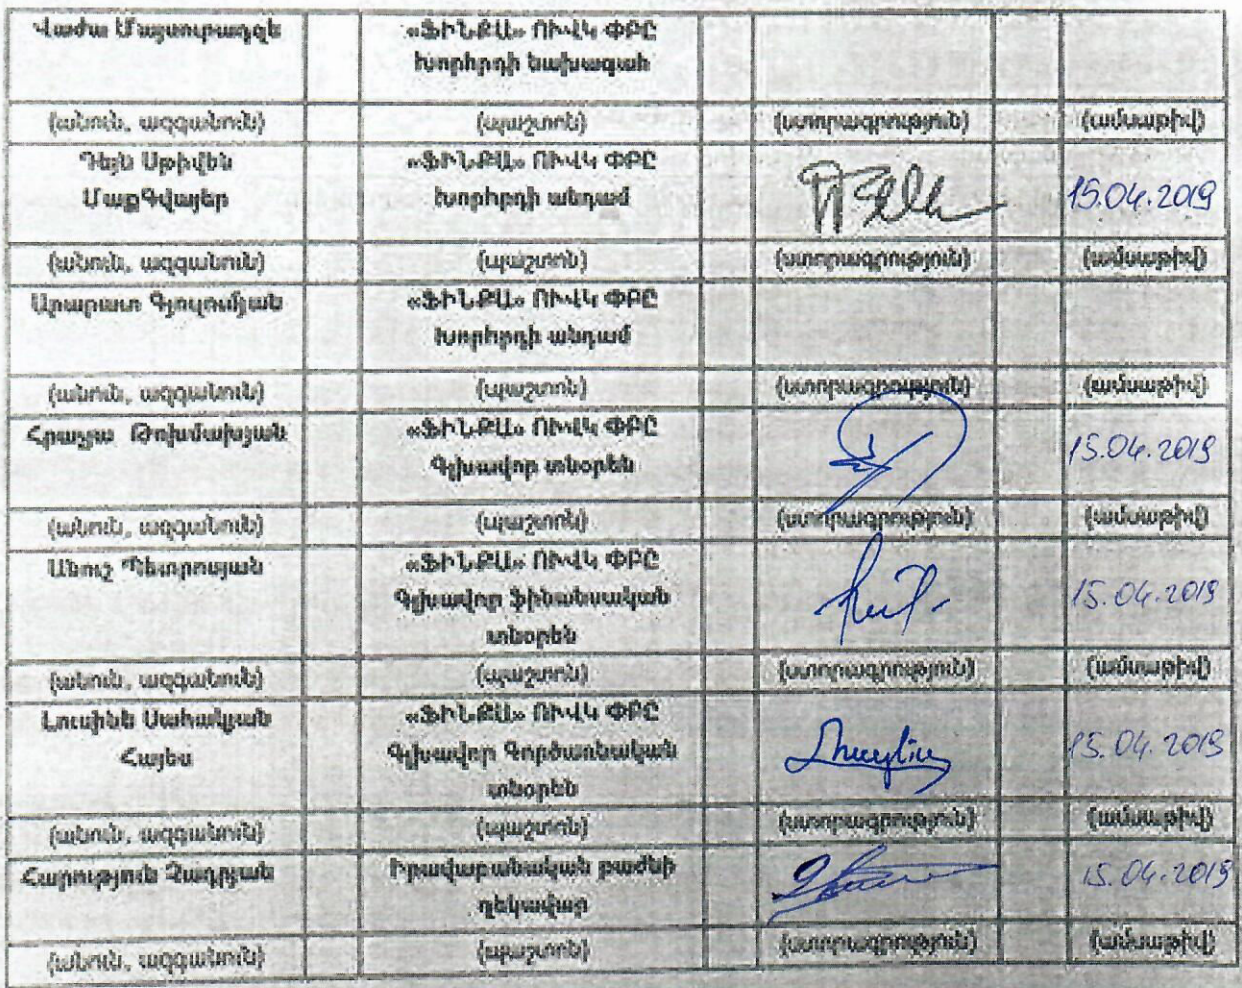 Վաժա Մայսուրաձզե «ՖԻՆՔԱ» ՈՒՎԿ ՓԲԸ
Խորհրդի նախագահ
(անուն, ազգանուն) (պաշտոն) (ստորագրություն) (ամսաթիվ)
Դեյն Սթիվեն «ՖԻՆՔԱ» ՈՒՎԿ ՓԲԸ
ՄաքԳվայեր Խորհրդի անդամ 15.04.2019
(անուն, ազգանուն) (պաշտոն) (ստորագրություն) (ամսաթիվ)
Արարատ Գյուլումյան «ՖԻՆՔԱ» ՈՒՎԿ ՓԲԸ
Խորհրդի անդամ
(անուն, ազգանուն) (պաշտոն) (ստորագրություն) (ամսաթիվ)
Հրաչյա Թոխմախյան «ՖԻՆՔԱ» ՈՒՎԿ ՓԲԸ
Գլխավոր տնօրեն 15.04.2019
(անուն, ազգանուն) (պաշտոն) (ստորագրություն) (ամսաթիվ)
Անուշ Պետրոսյան «ՖԻՆՔԱ» ՈՒՎԿ ՓԲԸ
Գլխավոր ֆինանսական 15.04.2019
տնօրեն
(անուն, ազգանուն) (պաշտոն) (ստորագրություն) (ամսաթիվ)
Լուսինե Սահակյան «ՖԻՆՔԱ» ՈՒՎԿ ՓԲԸ
Հայես Գլխավոր Գործառնական 15.04.2019
տնօրեն
(անուն, ազգանուն) (պաշտոն) (ստորագրություն) (ամսաթիվ)
Հարություն Չադրյան Իրավաբանական բաժնի 15.04.2019
ղեկավար
(անուն, ազգանուն) (պաշտոն) (ստորագրություն) (ամսաթիվ)